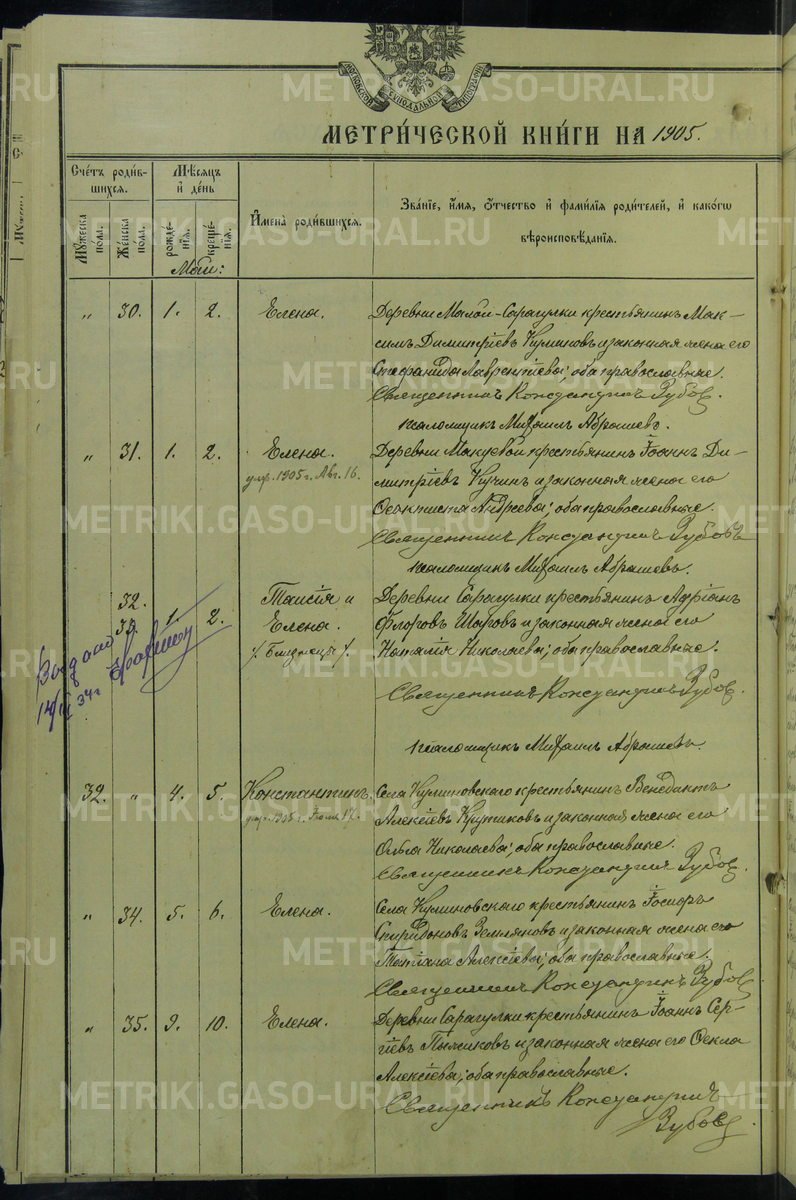 МОСКОВСКОЙ СѴНОДАЛЬНОЙ ТИПОГРАФІИ
МЕТРИЧЕСКОЙ КНИГИ НА 1905.
Счетъ родив-
шихся.
Мѣсяцъ
и день
Мужеска
пола.
Женска
пола.
рожде-
нія.
креще-
нія.
Имена родившихся.
Званіе, имя, отчество и фамилія родителей, и какогѡ
вѣроисповѣданія.
Май:
" 30. 1. 2. Елена. Деревни Малой-Сарагулки крестьянинъ Мак-
симъ Димитріевъ и законная жена его
Стефанида Лаврентіева; оба православные.
Священникъ Константинъ Зубовъ.
псаломщикъ Михаилъ Абрашевъ.
" 31. 1. 2. Елена. Деревни крестьянинъ Іоаннъ Ди-
умр. 1905 г. Авг. 16.
митріевъ Кучинъ и законная жена его
Ѳеоктиста Андреева; оба православные.
Священникъ Константинъ Зубовъ
псаломщикъ Михаилъ Абрашевъ.
32. Таисія и Деревни Сарагулки крестьянинъ Адріанъ
33. 1. 2. Елена. Флоровъ Шаровъ и законная жена его
/. Близнецы /. Наталія Николаева; оба православные.
14/III 34 г
Священникъ Константинъ Зубовъ.
псаломщикъ Михаилъ Абрашевъ.
32. " 4. 5. Константинъ. Села крестьянинъ Венедиктъ
умр. 1905 г. 17.
Алексіевъ Крутиковъ и законная жена его
Ольга Николаева; оба православные.
Священникъ Константинъ Зубов.
" 34. 5. 6. Елена. Села крестьянинъ
Спиридоновъ Земляновъ и законная жена его
Татіана Алексіева; оба православные.
Священникъ Константинъ Зубовъ
" 35. 9. 10. Елена. Деревни Сарагулки крестьянинъ Іоаннъ Сер-
гіевъ и законная жена его Ѳекла
Алексіева; оба православные.
Священникъ Константинъ
Зубовъ
METRIKI.GASO-URAL.RU